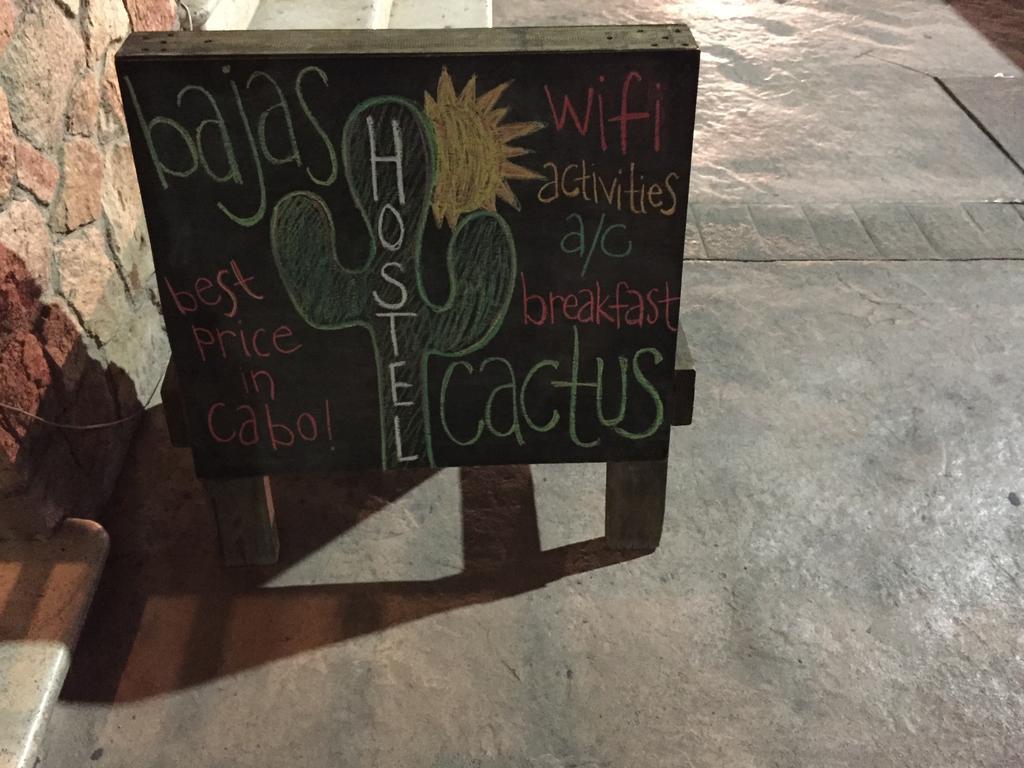 bajas
HOSTEL
cactus
wifi
activities
a/c
breakfast
best
price
in
cabo!